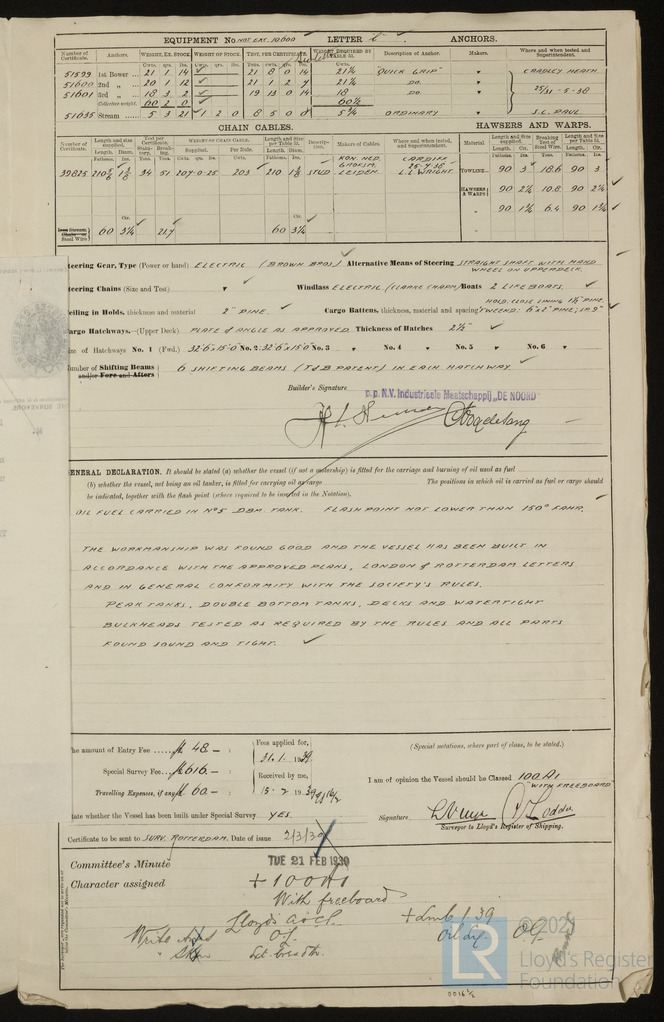 EQUIPMENT No. NOT EXC. 10,000 LETTER ANCHORS.
Number of Certificate. Anchors. WEIGHT, EX. STOCK. WEIGHT OF STOCK. TEST, PER CERTIFICATE. WEIGHT REQUIRED BY TABLE 31. Description of Anchor. Makers. Where and when tested and Superintendent.
51599 1st Bower 21 1 14 21 8 0 14 21¼ "QUICK GRIP" CRADLEY HEATH
51600 2nd 20 1 12 21 1 2 21¼ DO.
51601 3rd 18 3 2 19 13 0 14 18 DO. 25/31-5-38
Collective weight. 60 2 0 60½
51635 Stream 5 3 21 1 2 0 8 5 0 5¾ ORDINARY J.C. PAUL
CHAIN CABLES. HAWSERS AND WARPS.
Number of Certificate. Length and size supplied. Test per Certificate. WEIGHT OF CHAIN CABLE. Length and size per Table 31. Description. Makers of Cables. Where and when tested, and Superintendent. Material Length and size supplied. Breaking Test of Steel Wire. Length and size per Table 31.
39825 34 51 207-0-25 203 210 STUD KON. NED. GROFSM. LEIDEN. CARDIFF 25-4-38 L.L. WRIGHT. TOWLINE 90 3 18.6 90 3
HAWSERS & WARPS 90 2¼ 10.8 90 2¼
" 90 1¾ 6.4 90 1¾
Steel Wire 60 3¼ 21.7 60 3¼
teering Gear, Type (Power or hand) ELECTRIC (BROWN BROS) Alternative Means of Steering STRAIGHT SHAFT WITH HAND
WHEEL ON UPPERDECK.
teering Chains (Size and Test) Windlass ELECTRIC (CLARKE CHAPM) Boats 2 LIFEBOATS.
eiling in Holds, thickness and material 2" PINE. Cargo Battens, thickness, material and spacing
argo Hatchways.—(Upper Deck) PLATE & ANGLE AS APPROVED Thickness of Hatches 2½"
ize of Hatchways No. 1 (Fwd.) 32'6"x15'0" No. 2 32'6"x15'0" No. 3 No. 4 No. 5 No. 6
umber of Shifting Beams 6 SHIFTING BEAMS (T&B PATENT) IN EACH HATCHWAY.
and/or Fore and Afters
Builder's Signature p.p. N.V. Industrieele Maatschappij „DE NOORD"
ENERAL DECLARATION. It should be stated (a) whether the vessel (if not a motorship) is fitted for the carriage and burning of oil used as fuel
(b) whether the vessel, not being an oil tanker, is fitted for carrying oil as cargo The positions in which oil is carried as fuel or cargo should
be indicated, together with the flash point (where required to be inserted in the Notation).
OIL FUEL CARRIED IN Nº5 DBM TANK. FLASHPOINT NOT LOWER THAN 150° FAHR.
THE WORKMANSHIP WAS FOUND GOOD AND THE VESSEL HAS BEEN BUILT IN
ACCORDANCE WITH THE APPROVED PLANS, LONDON & ROTTERDAM LETTERS
AND IN GENERAL CONFORMITY WITH THE SOCIETY'S RULES.
PEAKTANKS, DOUBLE BOTTOM TANKS, DECKS AND WATERTIGHT
BULKHEADS TESTED AS REQUIRED BY THE RULES AND ALL PARTS
FOUND SOUND AND TIGHT.
he amount of Entry Fee ...... fl. 48 - : Fees applied for, (Special notations, where part of class, to be stated).
31.1. 1939
Special Survey Fee... fl. 616 - : Received by me, I am of opinion the Vessel should be Classed 100A1
"WITH FREEBOARD"
Travelling Expenses, if any fl. 60 - : 15-2 1939
Signature
tate whether the Vessel has been built under Special Survey YES Surveyor to Lloyd's Register of Shipping.
Certificate to be sent to SURV. ROTTERDAM. Date of issue 2/3/39
Committee's Minute TUE 21 FEB 1939
Character assigned +100A1
With freeboard
Lloyd's A&CP. + LMC 1.39
Write OF Oil Eng. OG
Let. breadth.
© 2021
LR Lloyd's Register
Foundation